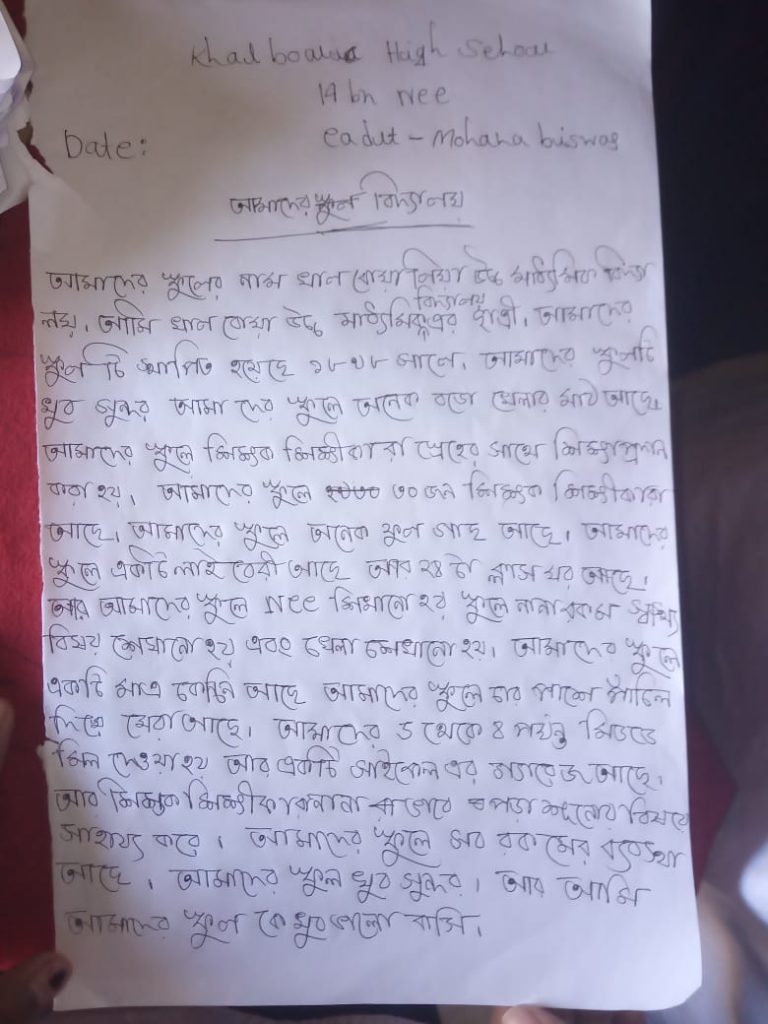 Khalboalia High School
14 bn ncc
Date:
cadut - Mohana biswas
আমাদের স্কুল বিদ্যালয়
আমাদের স্কুলের নাম খাল বোয়ালিয়া উচ্চ মাধ্যমিক বিদ্যা
লয়, আমি খাল বোয়া উচ্চ মাধ্যমিক বিদ্যালয় এর ছাত্রী, আমাদের
স্কুল টি স্থাপিত হয়েছে সালে, আমাদের স্কুলটি
খুব সুন্দর আমা দের স্কুলে অনেক বড়ো খেলার মাঠ আছে,
আমাদের স্কুলে শিক্ষক শিক্ষীকারা স্নেহের সাথে শিক্ষাপ্রদান
করা হয়, আমাদের স্কুলে ৩০ জন শিক্ষক শিক্ষীকারা
আছে, আমাদের স্কুলে অনেক ফুল গাছ আছে, আমাদের
স্কুলে একটি লাইবেরী আছে আর ২৪ টা ক্লাস ঘর আছে,
আর আমাদের স্কুলে ncc শিখানো হয় স্কুলে নানা রকম
বিষয় শেখানো হয় এবং খেলা শেখানো হয়, আমাদের স্কুলে
একটি মাত্র আছে আমাদের স্কুলে চার পাশে পাঁচিল
দিয়ে ঘেরা আছে, আমাদের ৫ থেকে ৪ পর্যন্ত মিডডে
মিল দেওয়া হয় আর একটি সাইকেল এর গ্যারেজ আছে,
আর শিক্ষক শিক্ষীকারা নানা ভাবে পড়া শুনোর বিষয়ে
সাহায্য করে, আমাদের স্কুলে সব রকমের ব্যবস্থা
আছে, আমাদের স্কুল খুব সুন্দর, আর আমি
আমাদের স্কুল কে খুব ভালো বাসি,